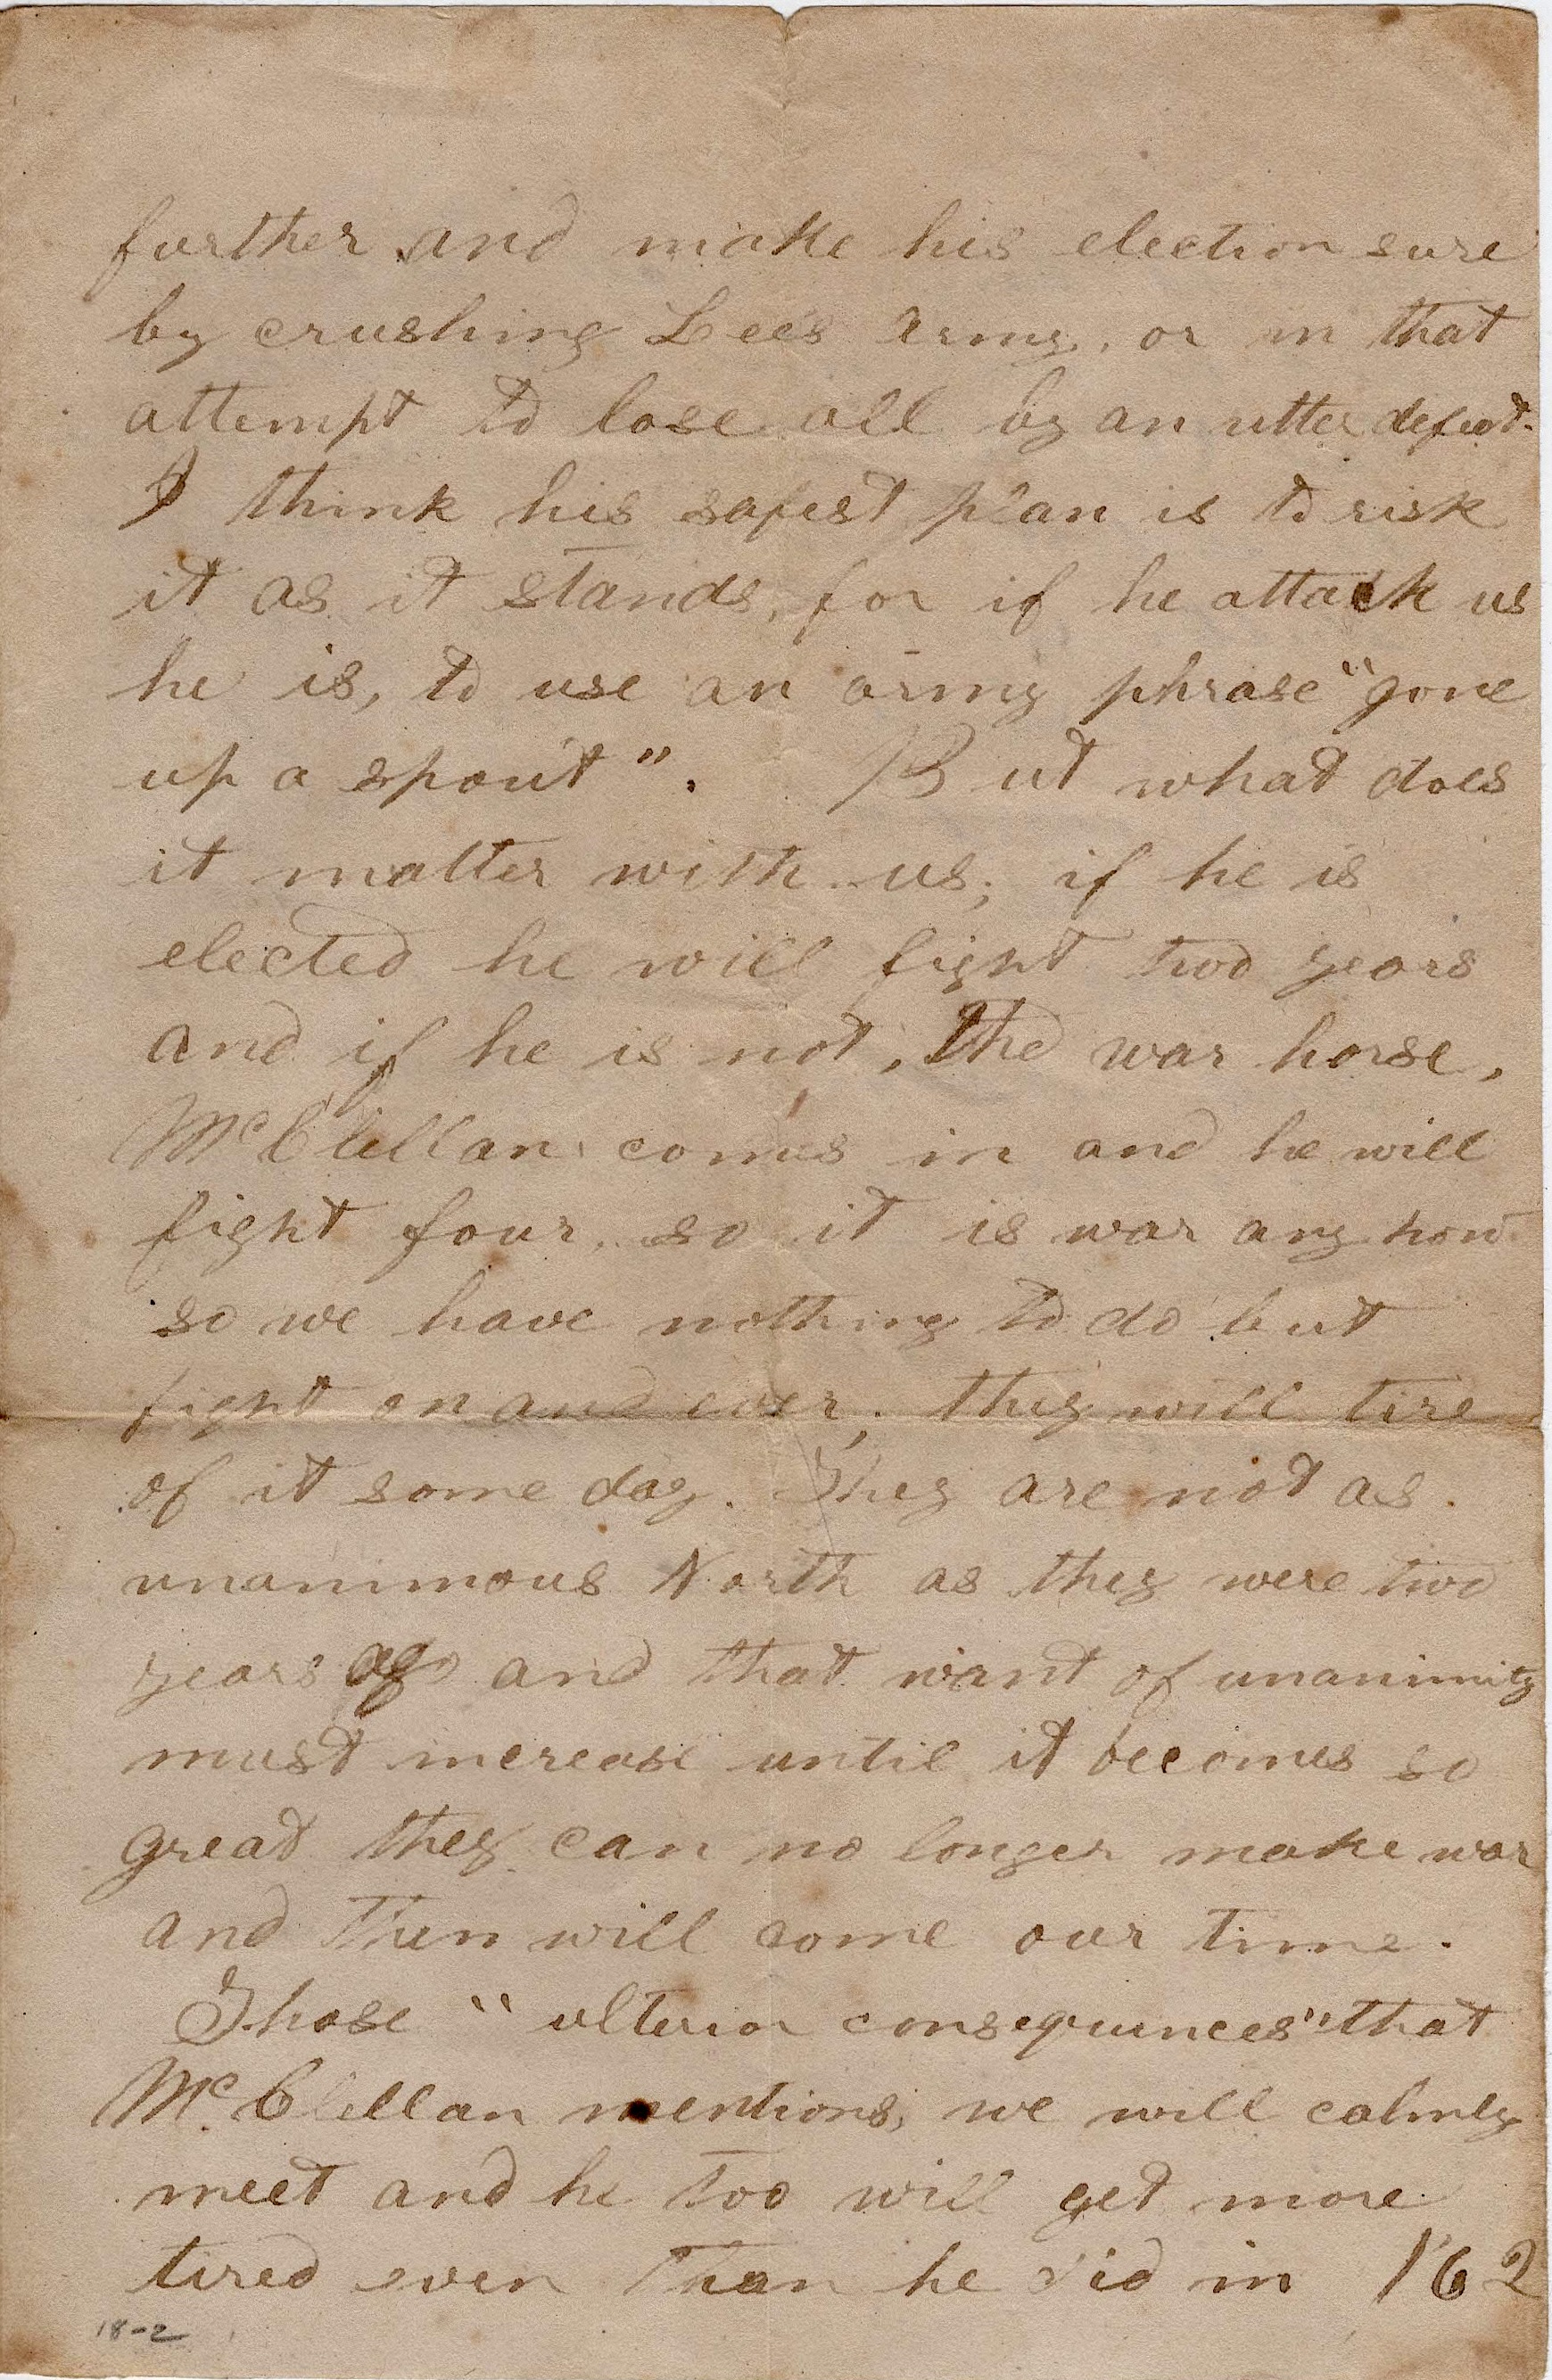 further and make his election sure
by crushing Lees Army, or in that
attempt to lose all by an utter defeat.
I think his safest plan is to risk
it as it stands, for if he attack us
he is, to use an army phrase "gone
up a spout". But what does
it matter with us; if he is
elected he will fight two years
and if he is not, the war horse,
McClellan comes in and he will
fight four, so it is war any how
so we have nothing to do but
fight on and ever, they will tire
of it some day. They are not as
unanimous North as they were two
years ago and that want of unanimity
must increase until it becomes so
great they can no longer make war
and then will come our time.
Those "ulterior consequences" that
McClellan mentions, we will calmly
meet and he too will get more
tired even than he did in '62
18-2